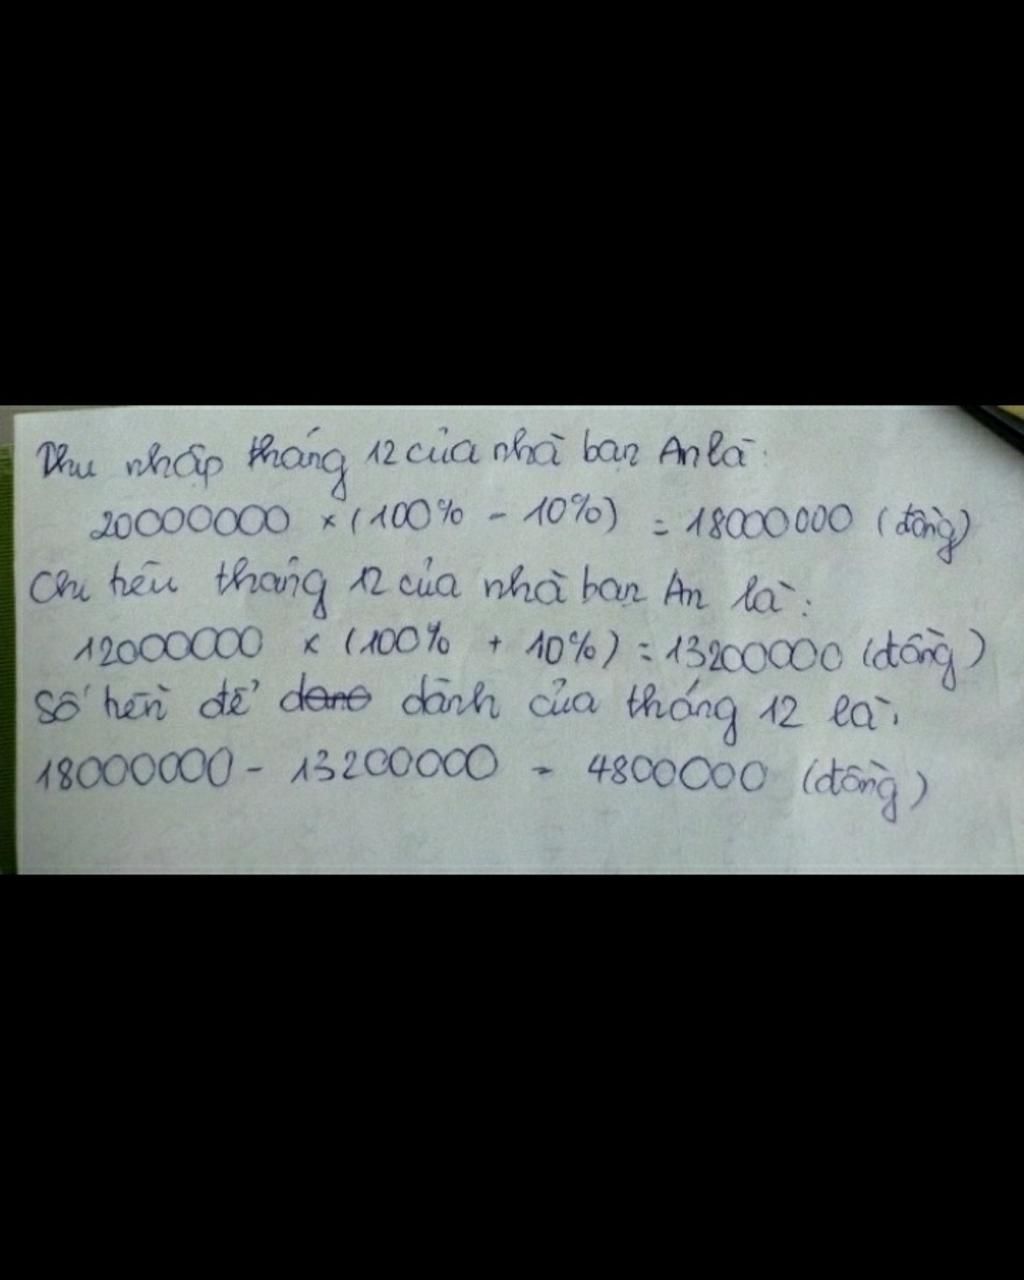 Thu nhập tháng 12 của nhà bạn An là:
20000000 × (100% - 10%) = 18000000 (đồng)
Chi tiêu tháng 12 của nhà bạn An là:
12000000 × (100% + 10%) = 13200000 (đồng)
Số tiền để dành của tháng 12 là:
18000000 - 13200000 = 4800000 (đồng)